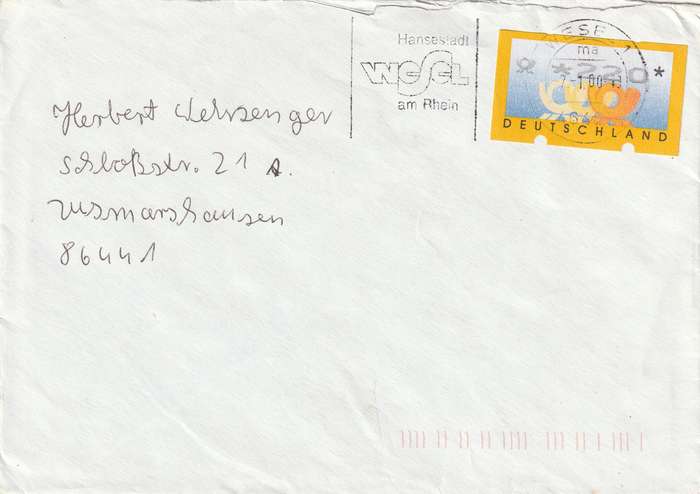 Hansestadt
WESEL
am Rhein
WESEL 1
ma
*220*
-7-1.00-
DEUTSCHLAND
Herbert
Schloßstr. 21 A.
Zusmarshausen
86441